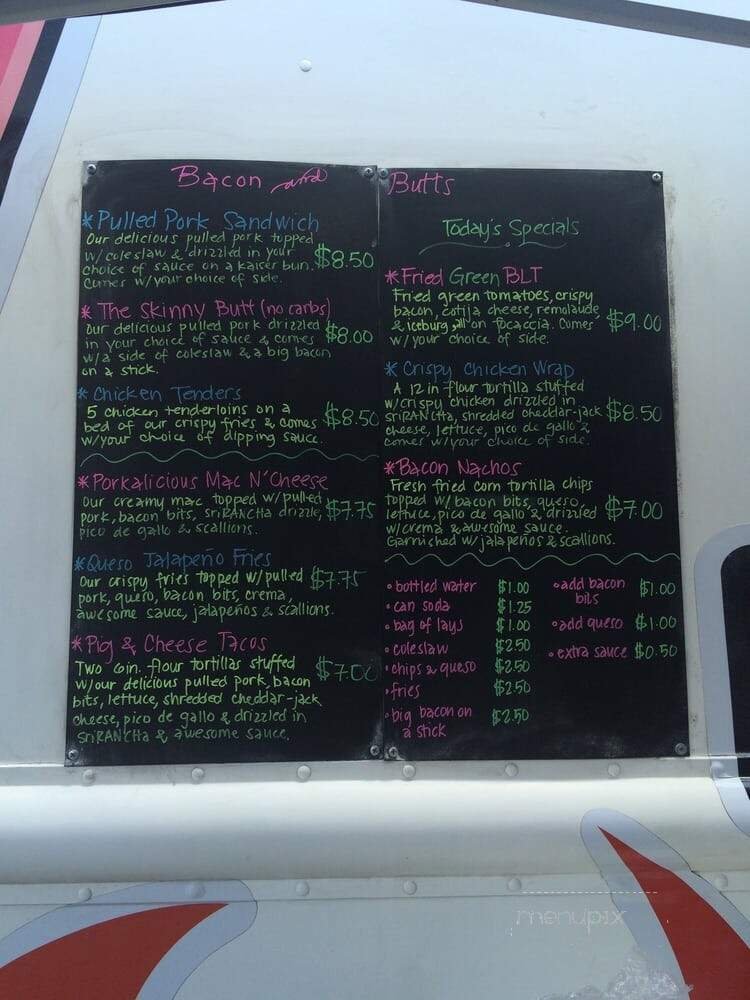 Bacon and Butts
*Pulled Pork Sandwich
Our delicious pulled pork topped
w/coleslaw & drizzled in your
choice of sauce on a kaiser bun.
Comes w/your choice of side.
$8.50
*The Skinny Butt (no carbs)
Our delicious pulled pork drizzled
in your choice of sauce & comes
w/a side of coleslaw & a big bacon
on a stick.
$8.00
*Chicken Tenders
5 chicken tenderloins on a
bed of our crispy fries & comes
w/your choice of dipping sauce.
$8.50
*Porkalicious Mac N' Cheese
Our creamy mac topped w/pulled
pork, bacon bits, sriRANCHa drizzle,
pico de gallo & scallions.
$7.75
*Queso Jalapeño Fries
Our crispy fries topped w/pulled
pork, queso, bacon bits, crema,
awesome sauce, jalapeños & scallions.
$7.75
*Pig & Cheese Tacos
Two 6in. flour tortillas stuffed
w/our delicious pulled pork, bacon
bits, lettuce, shredded cheddar-jack
cheese, pico de gallo & drizzled in
sriRANCHa & awesome sauce.
$7.00
Today's Specials
*Fried Green BLT
Fried green tomatoes, crispy
bacon, cotija cheese, remolaude
& iceburg, all on focaccia. Comes
w/your choice of side.
$9.00
*Crispy Chicken Wrap
A 12 in flour tortilla stuffed
w/crispy chicken drizzled in
sriRANCHa, shredded cheddar-jack
cheese, lettuce, pico de gallo &
comes w/your choice of side.
$8.50
*Bacon Nachos
Fresh fried corn tortilla chips
topped w/bacon bits, queso,
lettuce, pico de gallo & drizzled
w/crema & awesome sauce.
Garnished w/jalapeños & scallions.
$7.00
• bottled water $1.00
• can soda $1.25
• bag of lays $1.00
• coleslaw $2.50
• chips & queso $2.50
• fries $2.50
• big bacon on
a stick $2.50
• add bacon
bits $1.00
• add queso $1.00
• extra sauce $0.50
menupix